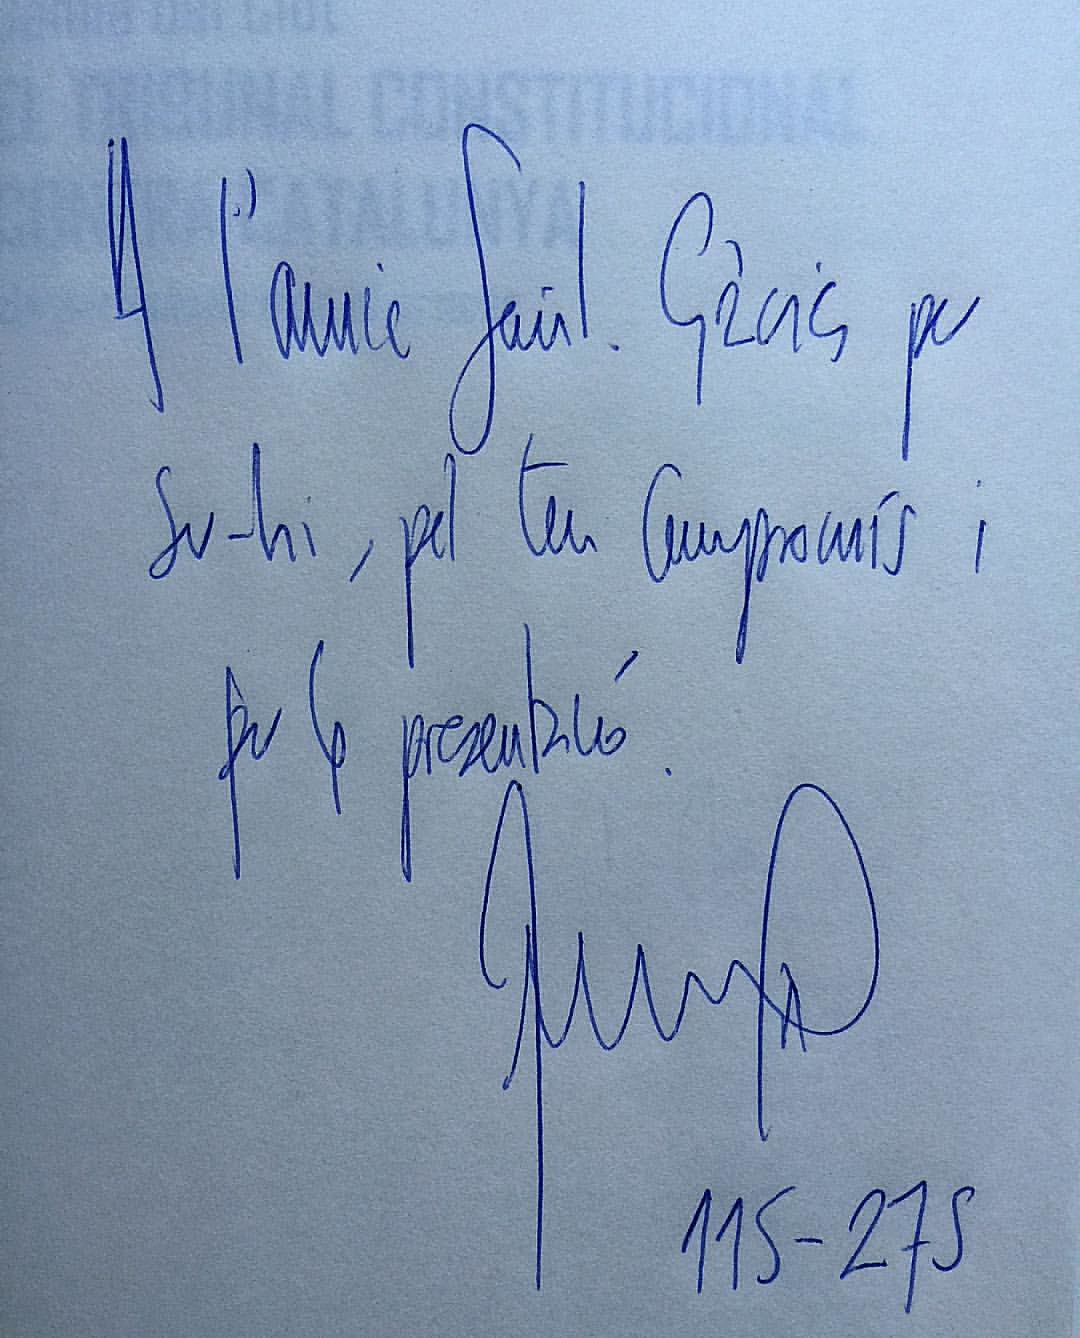 EL TRIBUNAL CONSTITUCIONAL
CONTRA CATALUNYA
A l'amic Saül. Gràcies per
ser-hi, pel teu compromís i
per la presentació.
11S-27S